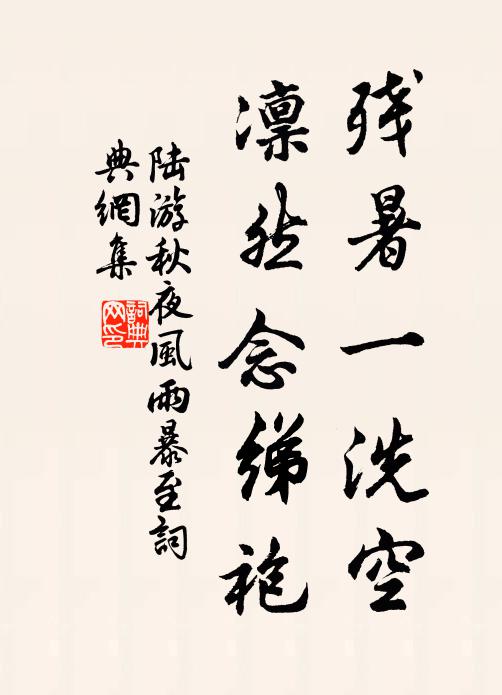 残暑一洗空
凛然念绨袍
陆游秋夜風雨暴至詞
典網集
詞典
网印